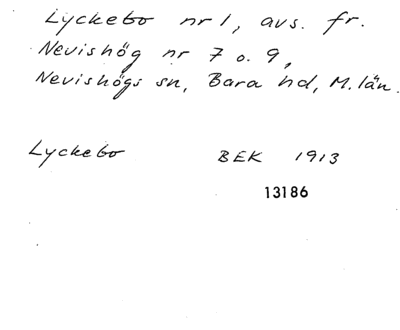 Lyckebo nr 1, avs. fr.
Nevishög nr 7 o. 9,
Nevishögs sn, Bara hd, M. län.
Lyckebo BEK 1913
13186